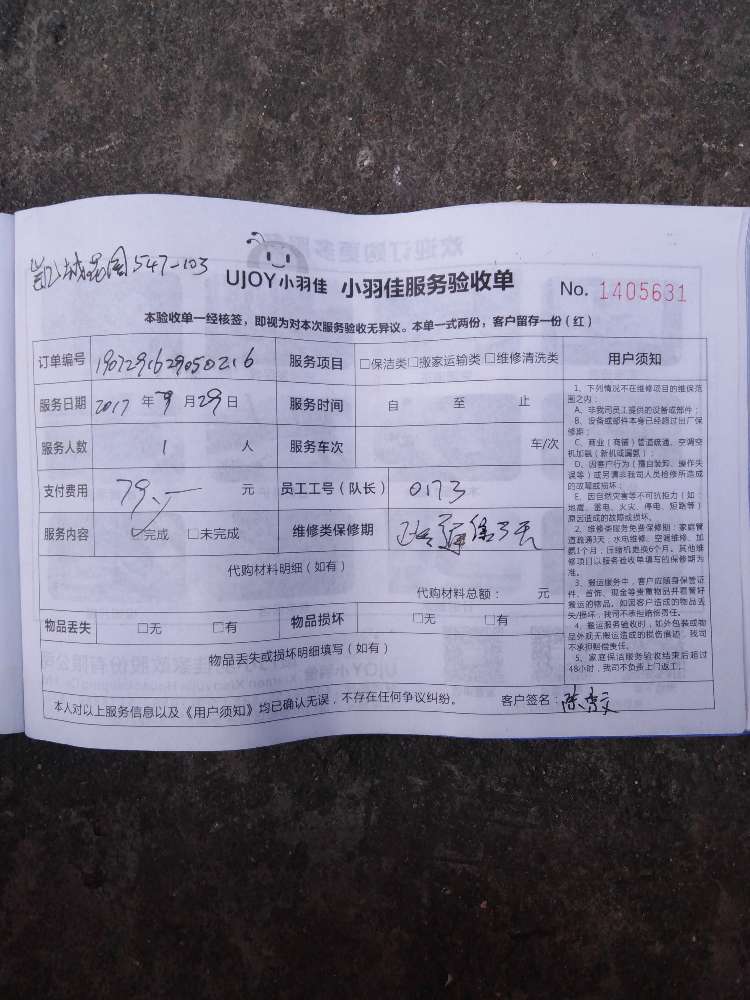 547-103
UJOY小羽佳 小羽佳服务验收单 No. 1405631
本验收单一经核签，即视为对本次服务验收无异议。本单一式两份，客户留存一份（红）
订单编号 1907291629050216 服务项目 □保洁类□搬家运输类□维修清洗类 用户须知
服务日期 2017年9月29日 服务时间 自 至 止
服务人数 1 人 服务车次 车/次
支付费用 79.- 元 员工工号（队长） 0173
服务内容 □完成 □未完成 维修类保修期
代购材料明细（如有）
代购材料总额： 元
物品丢失 □无 □有 物品损坏 □无 □有
物品丢失或损坏明细填写（如有）
本人对以上服务信息以及《用户须知》均已确认无误，不存在任何争议纠纷。 客户签名：
1、下列情况不在维修项目的维保范
围之内：
A、非我司员工提供的设备或部件；
B、设备或部件本身已经超过出厂保
修期；
C、商业（商铺）管道疏通、空调空
机加氨（新机或漏氨）；
D、因客户行为（擅自装卸、操作失
误等）或另请非我司人员检修所造成
的故障或损坏；
E、因自然灾害等不可抗拒力（如：
地震、雷电、火灾、停电、短路等）
原因造成的故障或损坏。
2、维修类服务免费保修期：家庭管
道疏通3天；水电维修、空调维修、加
氨1个月；压缩机更换6个月。其他维
修项目以服务验收单填写的保修期为
准。
3、搬运服务中，客户应随身保管证
件、首饰、现金等贵重物品并看管好
搬运的物品。如因客户造成的物品丢
失/损坏，我司不承担赔偿责任。
4、搬运服务验收时，如外包装或物
品外观无搬运造成的损伤痕迹，我司
不承担赔偿责任。
5、家庭保洁服务验收结束后超过
48小时，我司不负责上门返工。